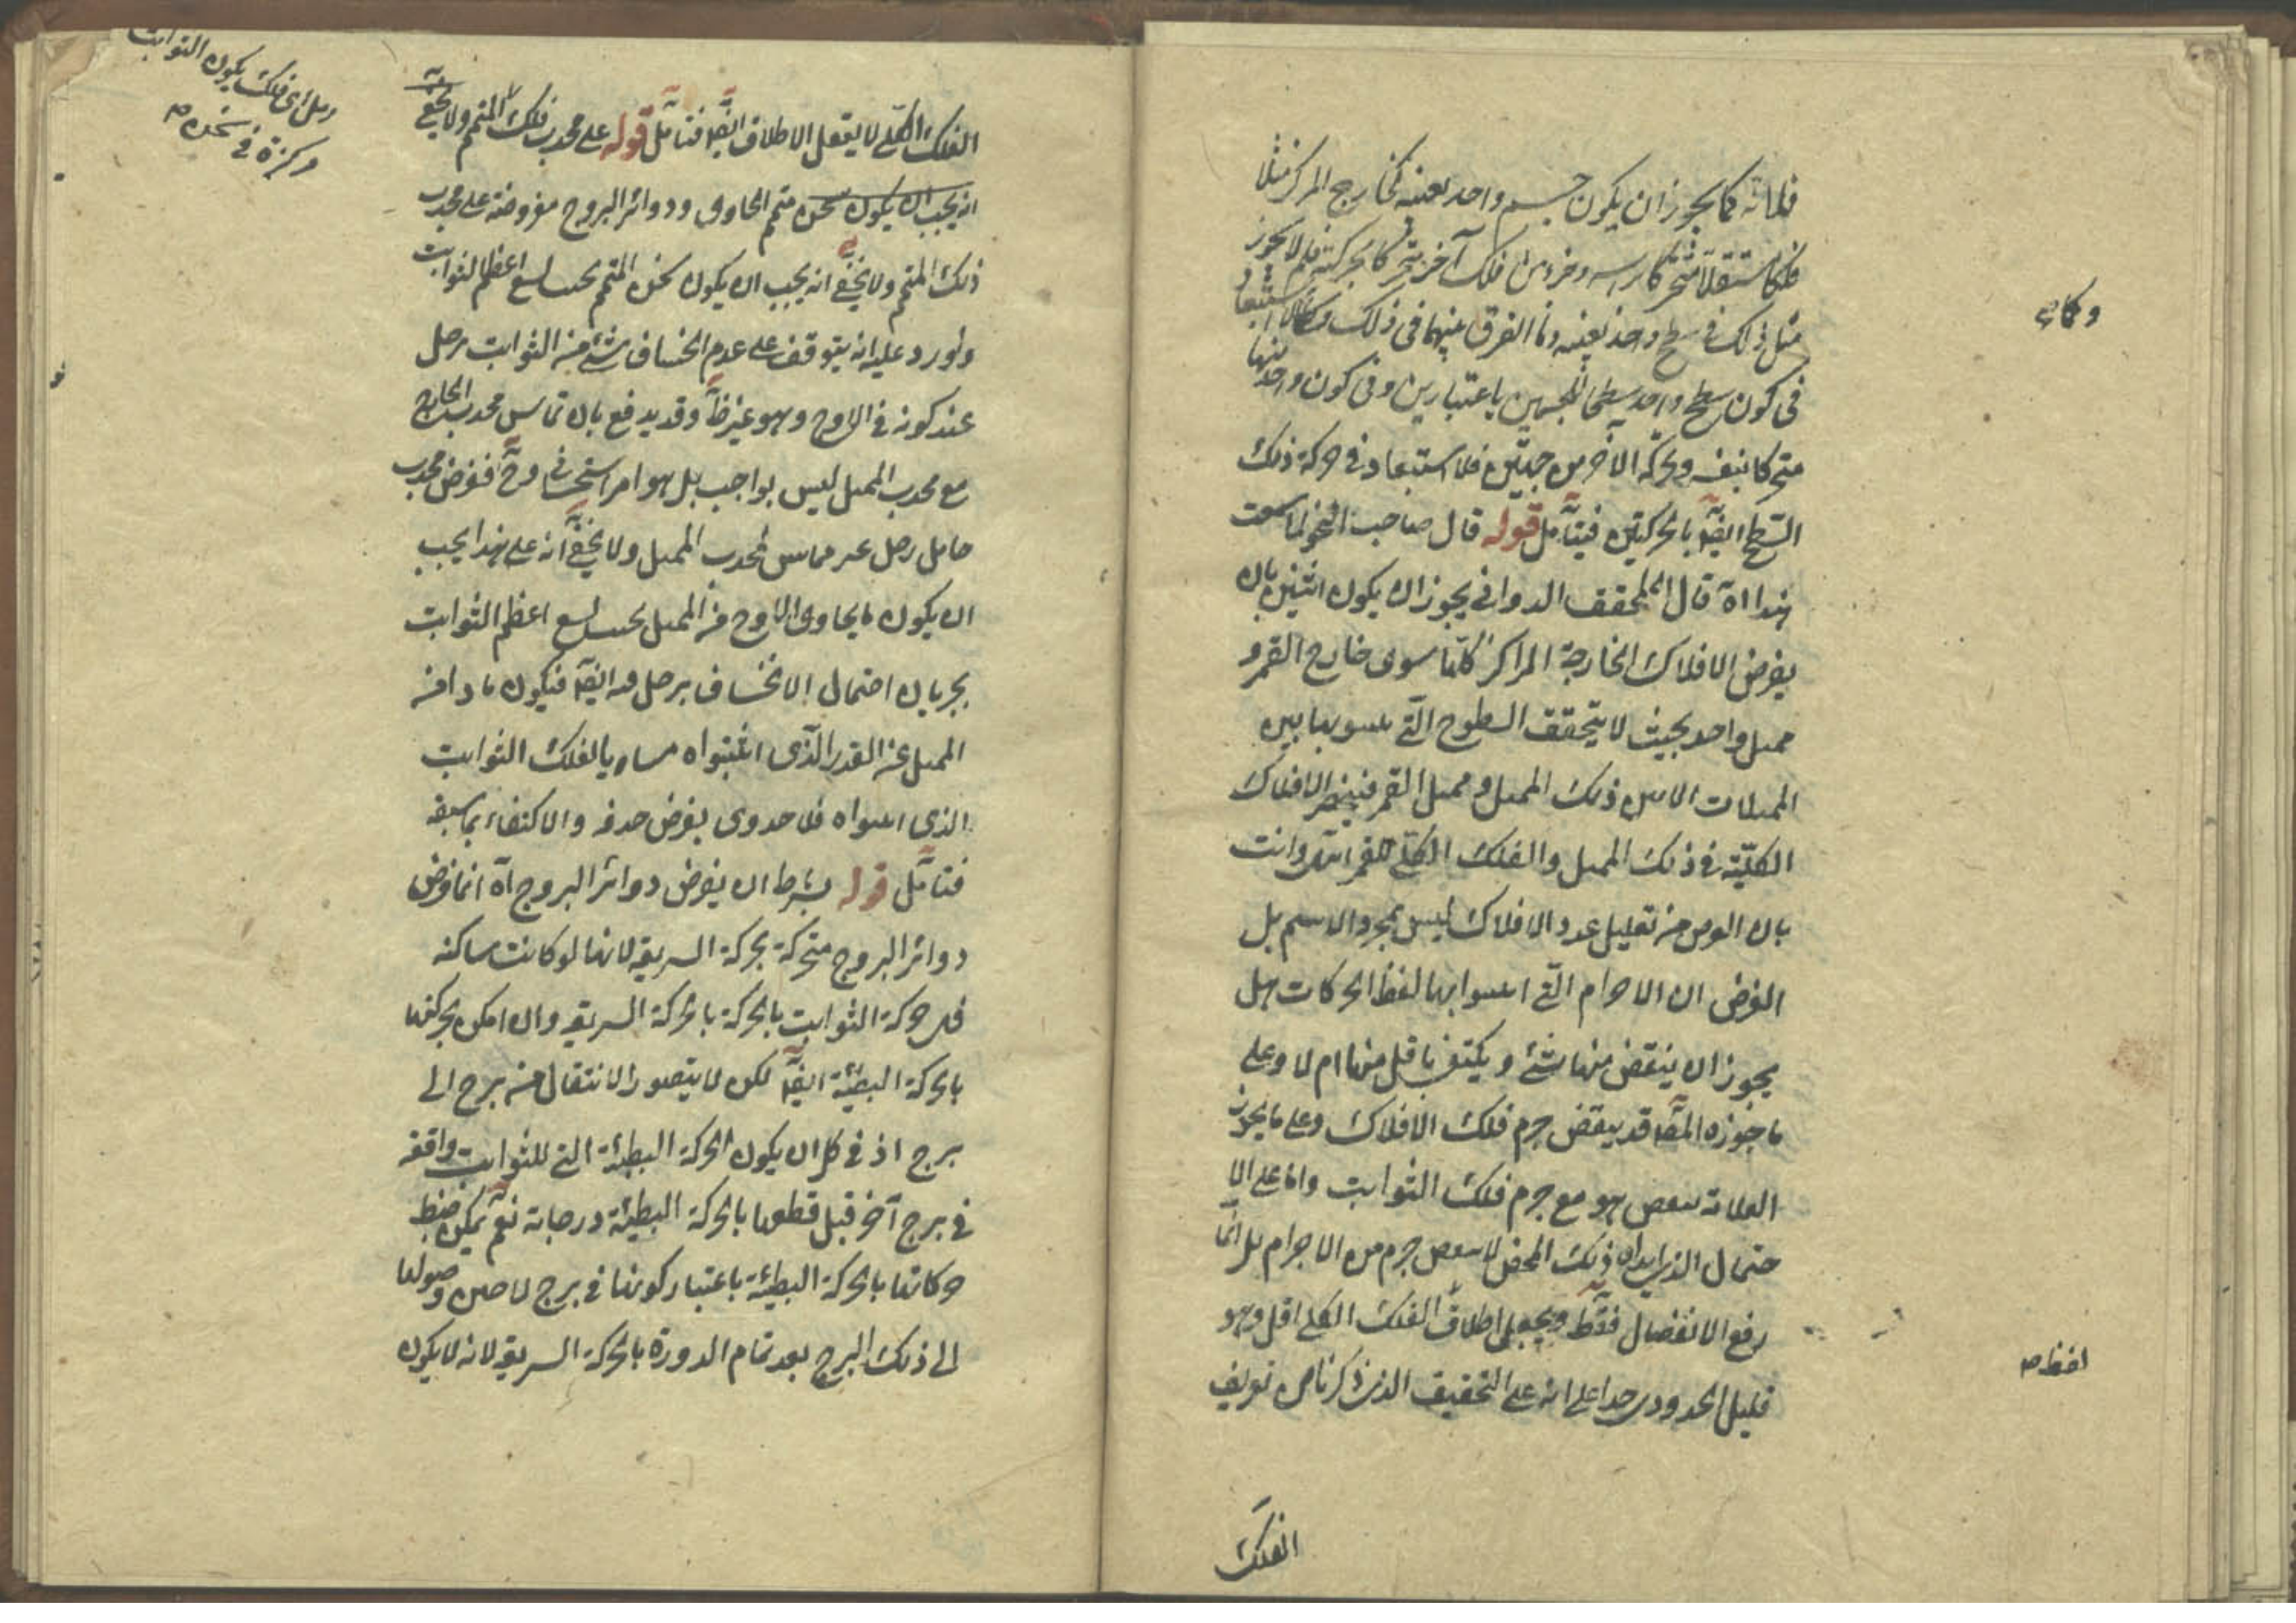 فلانه كما يجوز ان يكون جسم واحد بعينه كخارج المركز مثلا
فلكا مستقلا متحركا براسه وجزء من فلك آخر يتحرك بحركته فلم لا يجوز
مثل ذلك في سطح واحد بعينه وما الفرق بينهما في ذلك وكما لا استبعاد
في كون سطح واحد سطحا لجسمين باعتبارين وفي كون واحد منهما
متحركا بنفسه وبحركة الآخر من جهتين فلا استبعاد في حركة ذلك
السطح ايضا بالحركتين فيتأمل قوله قال صاحب التحفة لما سمعت
هذا اه قال المحقق الدواني يجوز ان يكون اثنين بان
يفرض الافلاك الخارجة المراكز كلها سوى خارج القمر و
ممثل واحد بحيث لا يتحقق السطوح التي بين
الممثلات الا بين ذلك الممثل وممثل القمر فينحصر الافلاك
الكلية في ذلك الممثل والفلك الكلي للقمر انتهى وانت
بان الغرض من تقليل عدد الافلاك ليس بمجرد الاسم بل
الغرض ان الاجرام التي اثبتوا بها لضبط الحركات هل
يجوز ان ينقض منها شئ ويكتفى باقل منها ام لا وعلى
ما جوزه المص قد ينقض جرم فلك الافلاك وعلى ما يجوز
العلامة ينقص هو مع جرم فلك الثوابت واما على الا
حتمال الذي ابداه ذلك المحقق لا ينقص جرم من الاجرام بل انما
رفع الانفصال فقط ويجعل اطلاق الفلك الكلي اقل وهو
قليل الجدوى جدا على انه على التحقيق الذي ذكرنا من تعريف
الفلك
وكما
احفظ
الفلك الكلي لا يقبل الاطلاق ايضا فتأمل قوله على محدب فلك المتمم ولا يخفى
انه يجب ان يكون ثخن متمم الحاوي ودوائر البروج مفروضة على محدب
ذلك المتمم ولا يخفى انه يجب ان يكون ثخن المتمم بحيث يسع اعظم الثوابت
واورد عليه انه يتوقف على عدم انخساف شئ من الثوابت بزحل
عند كونه في الاوج وهو غير ظ وقد يدفع بان تماس محدب الخارج
مع محدب الممثل ليس بواجب بل هو امر استحساني وح فنفرض محدب
حامل زحل غير مماس لمحدب الممثل ولا يخفى انه على هذا يجب
ان يكون ما يحاوي الاوج من الممثل بحيث يسع اعظم الثوابت
بجريان احتمال الانخساف بزحل فيه ايضا فيكون ما زاد من
الممثل عن القدر الذي اثبتوه مساويا لفلك الثوابت
الذي اثبتوه فلا جدوى بفرض حذفه والاكتفاء بما سبقه
فتأمل قوله بشرط ان يفرض دوائر البروج اه انما فرض
دوائر البروج متحركة بحركة السريعة لانها لو كانت ساكنة
حركة الثوابت بالحركة بالحركة السريعة وان امكن بحركتها
بالحركة البطيئة ايضا لكن لا يتصور الانتقال من برج الى
برج اذ في كل ان يكون الحركة البطيئة التي للثوابت واقفة
في برج آخر قبل قطعها بالحركة البطيئة درجاته نعم يمكن ضبط
حركاتها بالحركة البطيئة باعتبار كونها في برج لا حين وصولها
الى ذلك البرج بعد تمام الدورة بالحركة السريعة لانه لا يكون
زحل اي فلك يكون الثوابت
مركزة في ثخنه